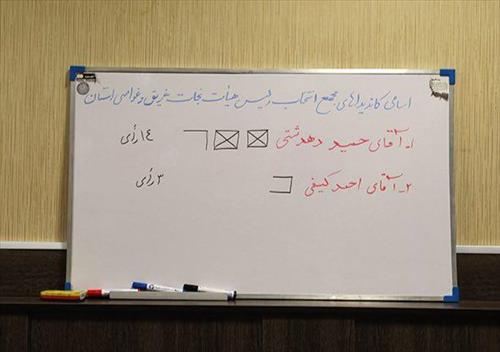 اسامی کاندیداهای مجمع انتخاب رئیس هیأت نجات غریق و غواصی استان
۱- آقای حمید دهدشتی ۱۴ رأی
۲- آقای احمد کیفی ۳ رأی